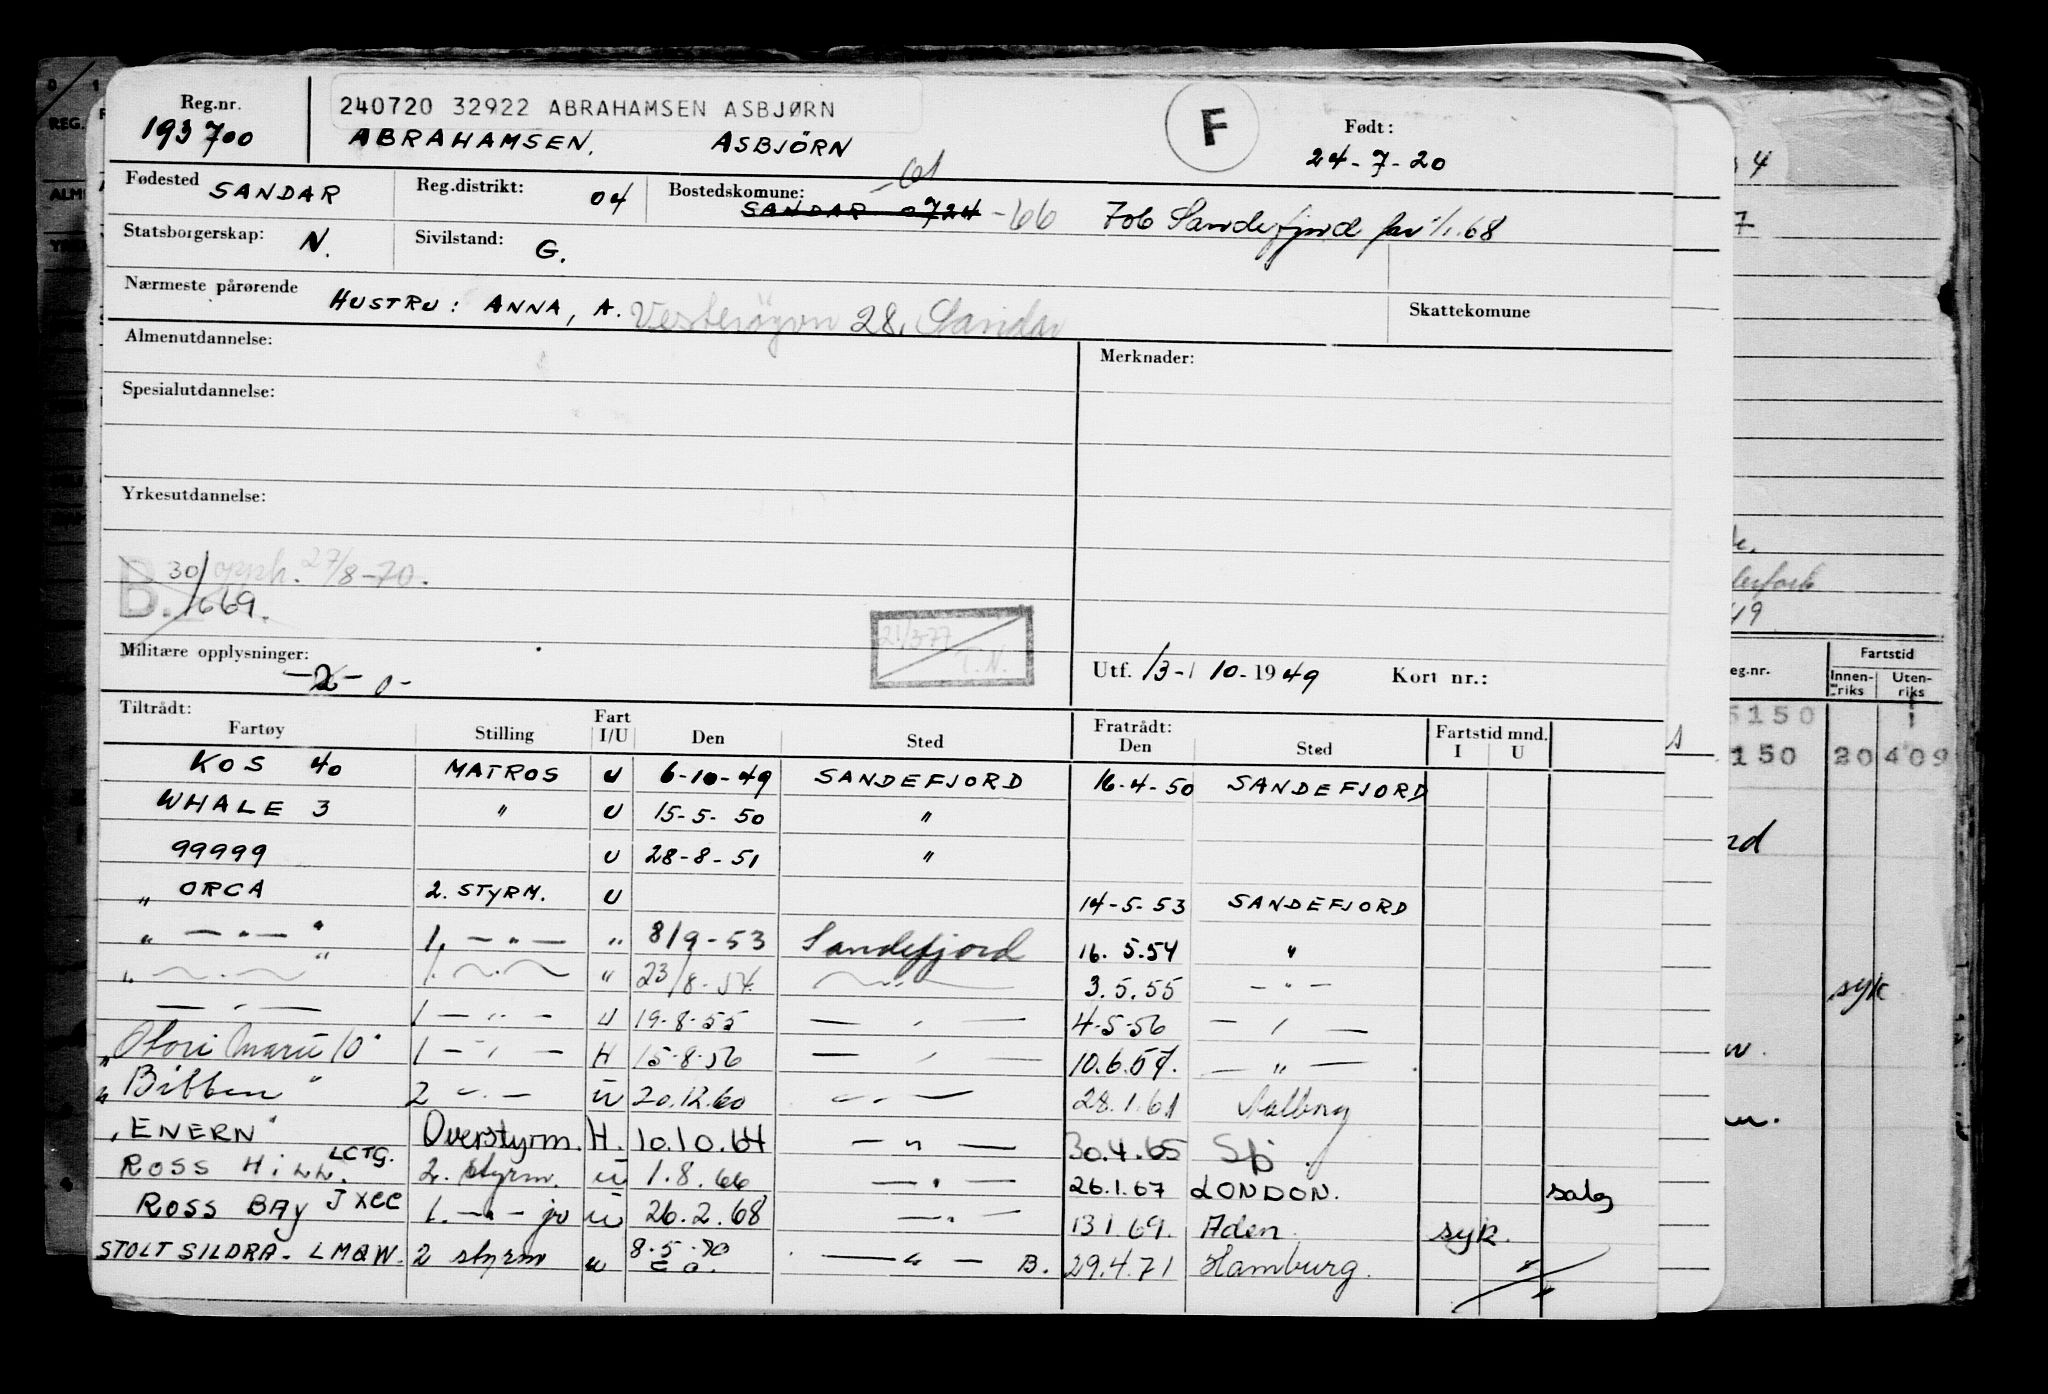 Reg.nr. 193700
240720 32922 ABRAHAMSEN ASBJØRN
ABRAHAMSEN, ASBJÖRN
F
Født: 24-7-20
Fødested SANDAR
Reg.distrikt: 04
Bostedskomune: SANDAR 0724 -66
706 Sandefjord fra 1/1.68
Statsborgerskap: N.
Sivilstand: G.
Nærmeste pårørende HUSTRU: ANNA, A. Vesterøyvn 28, Sandar
Skattekomune
Almenutdannelse:
Merknader:
Spesialutdannelse:
Yrkesutdannelse:
B. 30/6 69. opph. 27/8-70.
21/3-77
Militære opplysninger:
Utf. 13-10-1949 Kort nr.:
Tiltrådt:
Fartøy Stilling Fart I/U Den Sted Fratrådt: Den Sted Fartstid mnd. I U
KOS 40 MATROS U 6-10-49 SANDEFJORD 16-4-50 SANDEFJORD
WHALE 3 " U 15-5-50 "
99999 U 28-8-51 "
" ORCA 2. STYRM. U 14-5-53 SANDEFJORD
" — " — " 1. — " — " 8/9-53 Sandefjord 16.5.54 "
" — . — " 1. — . — " 23/8-54 — " — 3.5.55 — " —
— " — 1 — " — U 19-8-55 — " — 4-5-56 — " —
" Otori Maru 10" 1 — " — H 15-8-56 — " — 10.6.57. — " —
" Bibben " 2 — " — U 20.12.60 — " — 28.1.61 Aalborg
"ENERN" Overstyrm. H. 10.10.64 — " — 30.4.65 Sfj.
ROSS HILL LCTG. 2. styrm. u 1.8.66 — " — 26.1.67 LONDON. salg
ROSS BAY JXCC 1. — " — jr u 26.2.68 — " — 13 1 69. Aden. syk.
STOLT SILDRA - LMQW. 2 styrm u 8.5.70 — " — B. 29.4.71 Hamburg. "
Fartstid
Innen-riks Uten-riks
150 20 409
syk